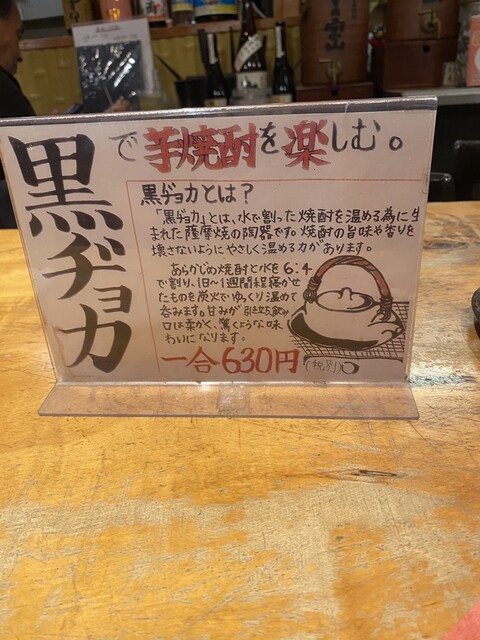 黒ヂョカ
で芋焼酎を楽しむ。
黒ヂョカとは？
「黒ヂョカ」とは、水で割った焼酎を温める為に生
まれた薩摩焼の陶器です。焼酎の旨味や香りを
壊さないようにやさしく温める力があります。
あらかじめ焼酎と水を6:4
で割り、1日〜1週間程寝かせ
たものを炭火でゆっくり温めて
呑みます。甘みが引き立ち飲み
口は柔かく、驚くような味
わいになります。
一合630円(税別)